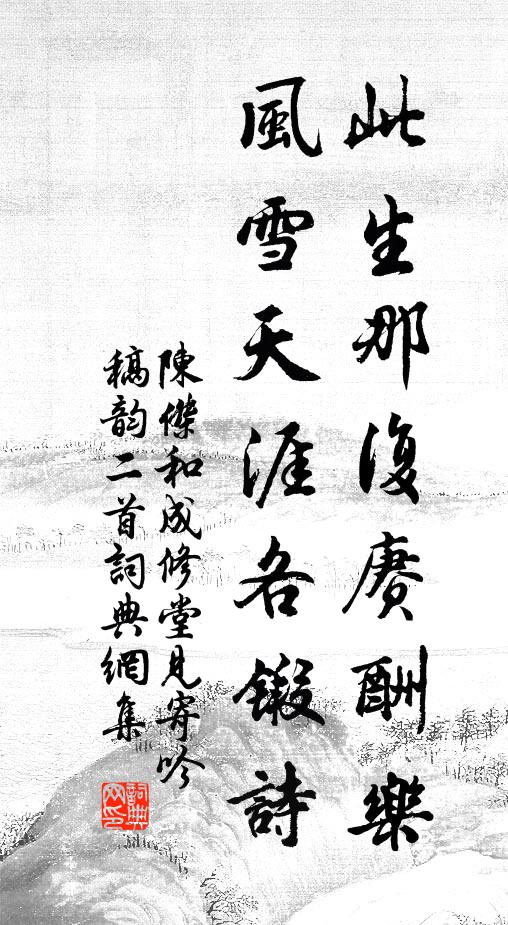 此生那復赓酬樂
風雪天涯各鍛詩
陳傑和成修堂見寄吟
稿韵二首詞典網集
詞典
网印